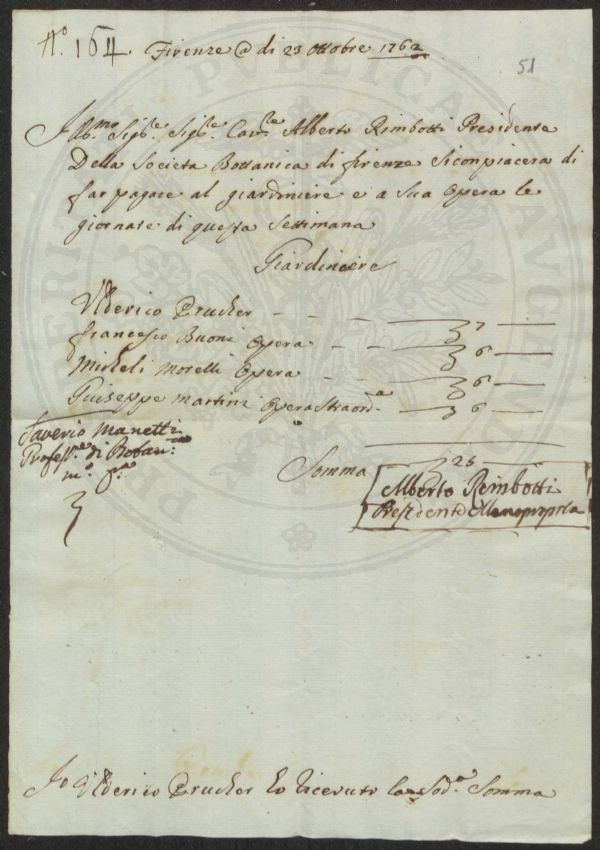 N.º 164. Firenze @ di 23 Ottobre 1762
51
Ill.mo Sig.re Sig.re Cav.re Alberto Rimbotti Presidente
Della Societa Bottanica di firenze si conpiacera di
far pagare al giardiniere e a sua opera le
giornate di questa Settimana
Giardiniere
Ulderico Prucker - - - 7
francesco Buoni Opera - - 6
Micheli Morelli Opera - - 6
Giuseppe Martini Opera Straord.a 6
Saverio Manetti
Profess.re di Botan.ca
m.o p.a
Somma 25
Alberto Rimbotti
Presidente Manopropria
Io Ulderico Prucker ho ricevuto la Sod.a Somma